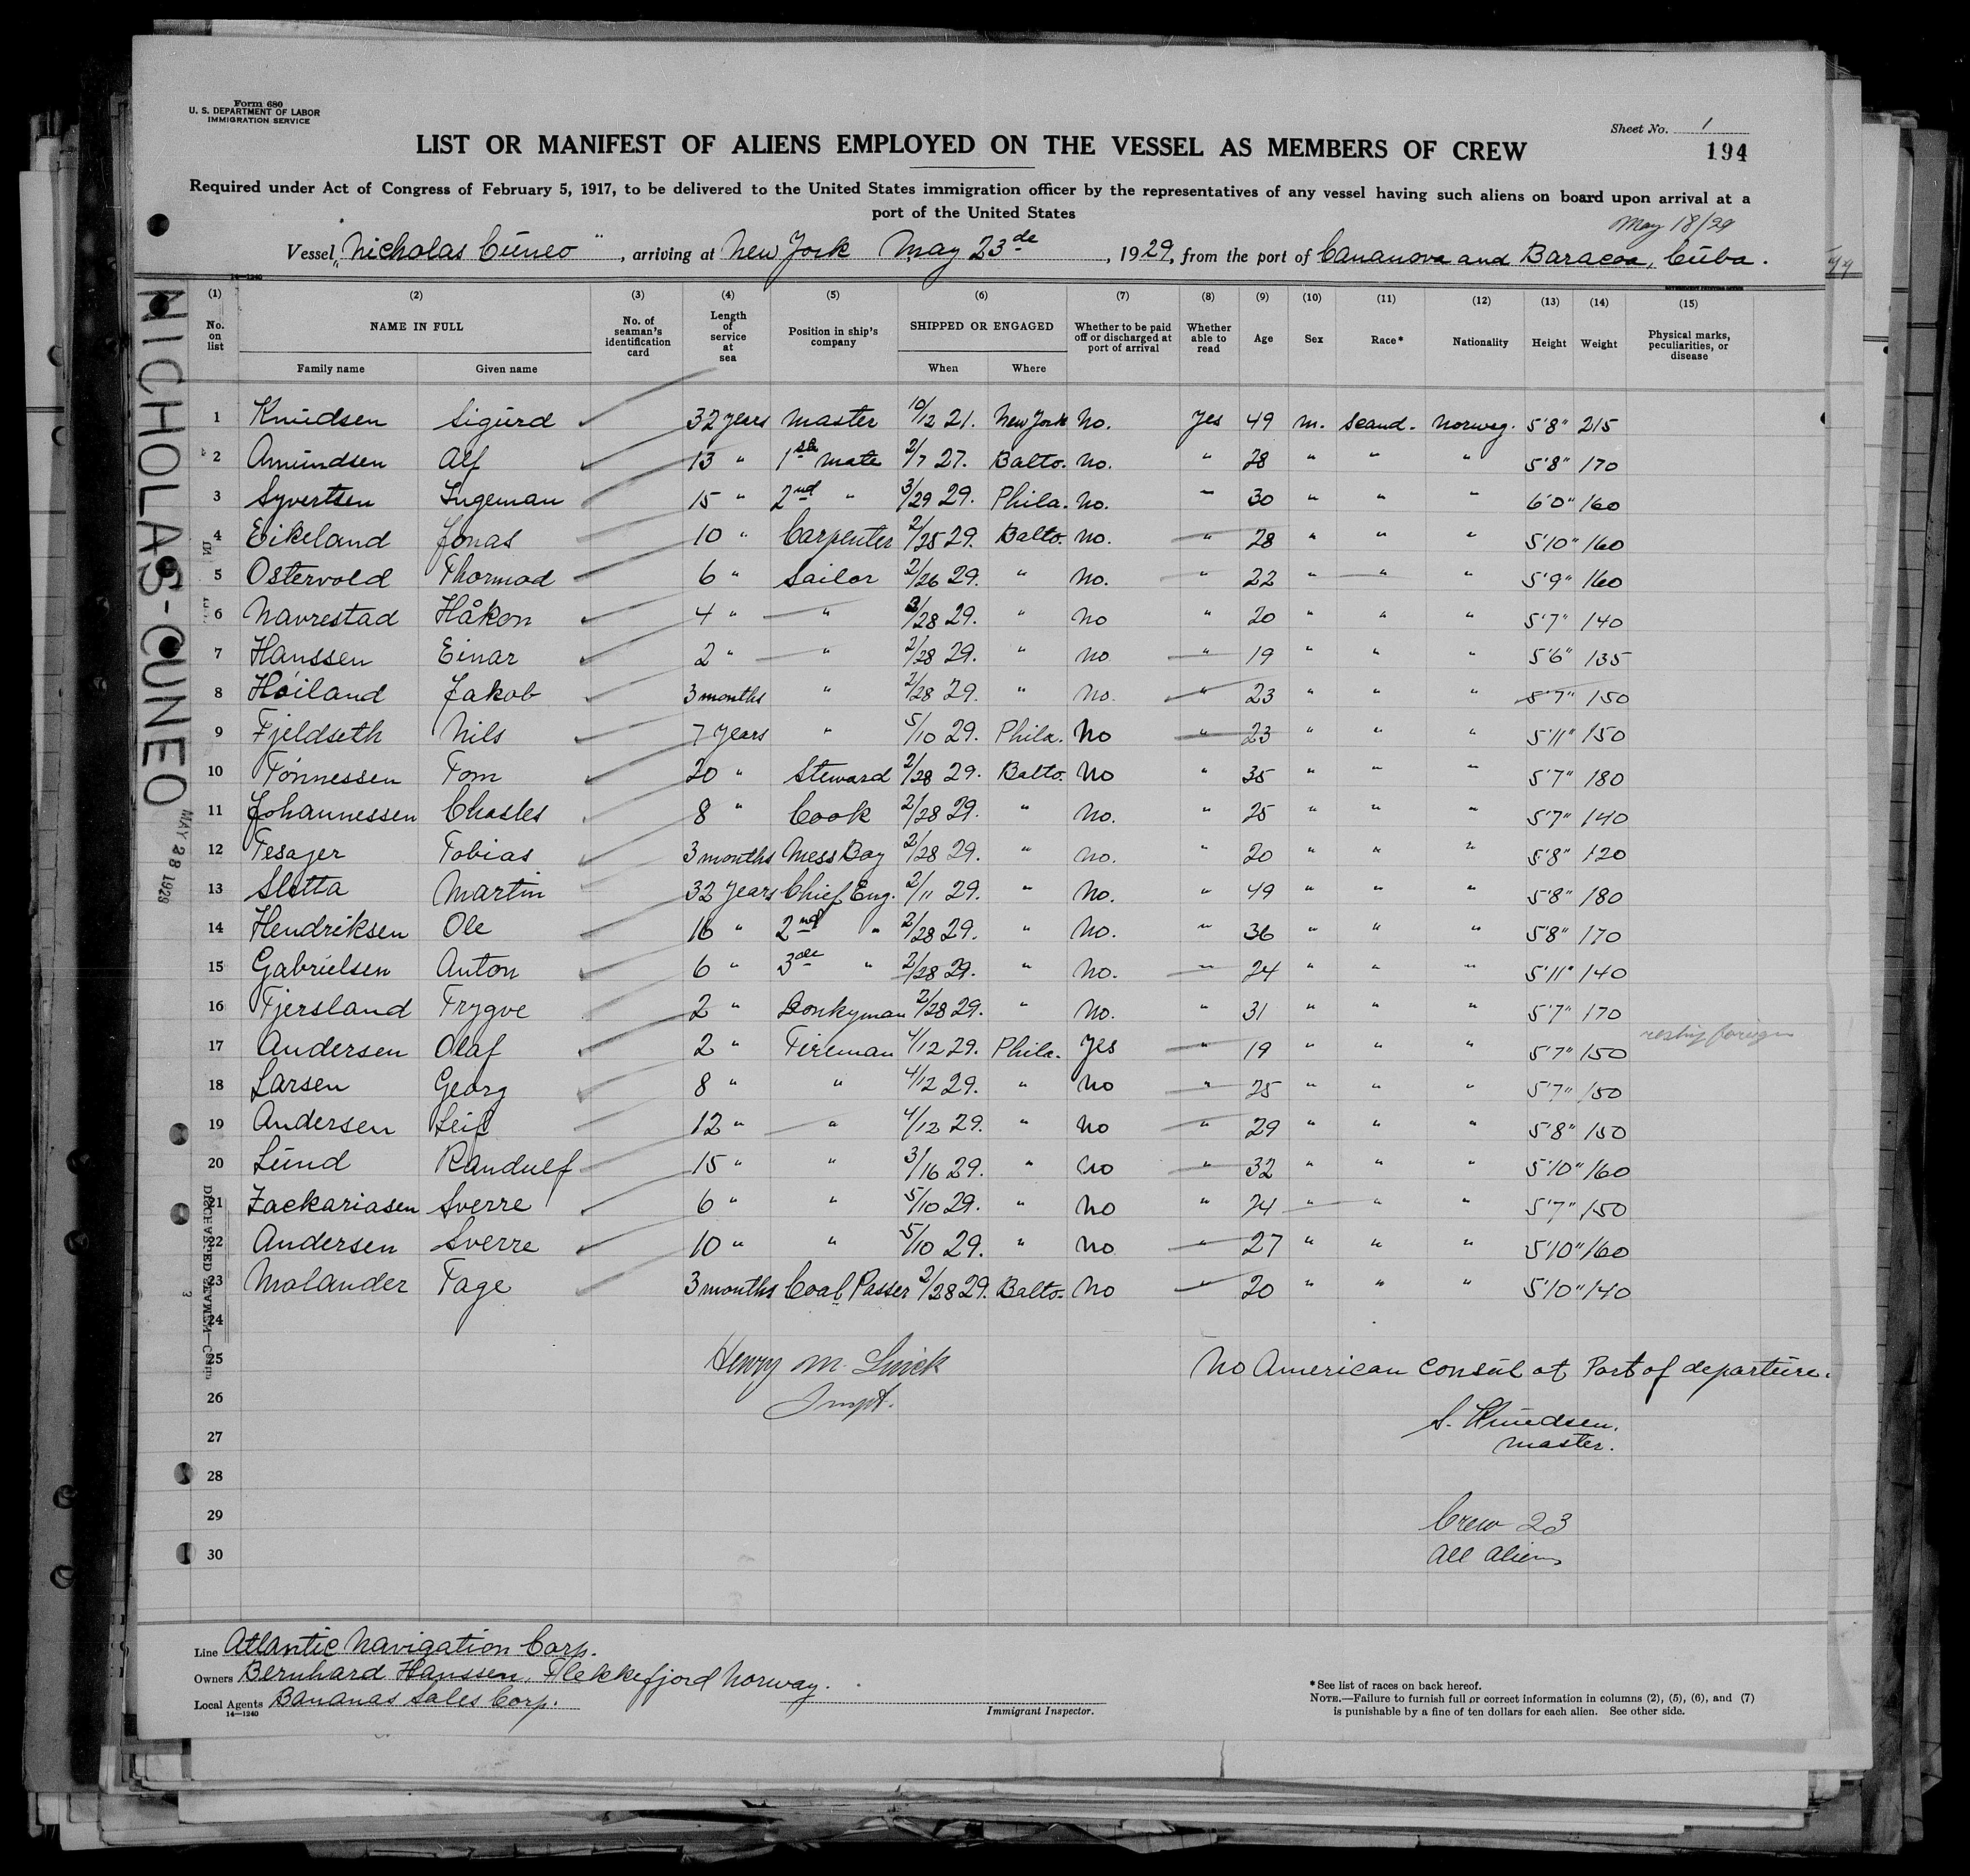 Form 680
U. S. DEPARTMENT OF LABOR
IMMIGRATION SERVICE
Sheet No. 1
194
LIST OR MANIFEST OF ALIENS EMPLOYED ON THE VESSEL AS MEMBERS OF CREW
Required under Act of Congress of February 5, 1917, to be delivered to the United States immigration officer by the representatives of any vessel having such aliens on board upon arrival at a
port of the United States
May 18/29
Vessel „Nicholas Cuneo“, arriving at New York May 23de, 1929, from the port of Cananova and Baracoa, Cuba.
14—1240
(1) (2) (3) (4) (5) (6) (7) (8) (9) (10) (11) (12) (13) (14) (15)
No. on list NAME IN FULL No. of seaman's identification card Length of service at sea Position in ship's company SHIPPED OR ENGAGED Whether to be paid off or discharged at port of arrival Whether able to read Age Sex Race* Nationality Height Weight Physical marks, peculiarities, or disease
Family name Given name When Where
1 Knudsen Sigurd 32 years Master 10/12 21. New York No. Yes 49 M. Scand. Norweg. 5'8" 215
2 Amundsen Alf 13 " 1st Mate 2/7 27. Balto. No. " 28 " " " 5'8" 170
3 Syvertsen Ingeman 15 " 2nd " 3/29 29. Phila. No. " 30 " " " 6'0" 160
4 Eikeland Jonas 10 " Carpenter 2/25 29. Balto. No. " 28 " " " 5'10" 160
5 Ostervold Thormod 6 " Sailor 2/26 29. " No. " 22 " " " 5'9" 160
6 Navrestad Håkon 4 " " 3/28 29. " No " 20 " " " 5'7" 140
7 Hanssen Einar 2 " " 2/28 29. " No " 19 " " " 5'6" 135
8 Hóiland Jakob 3 months " 2/28 29. " No. " 23 " " " 5'7" 150
9 Fjeldseth Nils 7 years " 5/10 29. Phila. No " 23 " " " 5'11" 150
10 Tónnessen Tom 20 " Steward 2/28 29. Balto. No " 35 " " " 5'7" 180
11 Johannessen Charles 8 " Cook 2/28 29. " No. " 25 " " " 5'7" 140
12 Tesajer Tobias 3 months Mess Boy 2/28 29. " No. " 20 " " " 5'8" 120
13 Sletta Martin 32 years Chief Eng. 2/11 29. " No. " 49 " " " 5'8" 180
14 Hendriksen Ole 16 " 2nd " 2/28 29. " No. " 36 " " " 5'8" 170
15 Gabrielsen Anton 6 " 3de " 2/28 29. " No. " 24 " " " 5'11" 140
16 Tjersland Trygve 2 " Donkyman 2/28 29. " No. " 31 " " " 5'7" 170
17 Andersen Olaf 2 " Fireman 4/12 29. Phila. Yes " 19 " " " 5'7" 150 foreign
18 Larsen Georg 8 " " 4/12 29. " No " 25 " " " 5'7" 150
19 Andersen Leif 12 " " 4/12 29. " No " 29 " " " 5'8" 150
20 Lund Randulf 15 " " 3/16 29. " No " 32 " " " 5'10" 160
21 Zackariasen Sverre 6 " " 5/10 29. " No " 24 " " " 5'7" 150
22 Andersen Sverre 10 " " 5/10 29. " No " 27 " " " 5'10" 160
23 Molander Tage 3 months Coal Passer 2/28 29. Balto. No " 20 " " " 5'10" 140
24
25 Henry M. No American Consul at Port of departure.
26 Inspt.
S. Knudsen.
27 Master.
28
29 Crew 23
30 All aliens
NICHOLAS-CUNEO
MAY 28 1929
DISCHARGED SEAMEN
Line Atlantic Navigation Corp.
Owners Bernhard Hanssen, Flekkefjord Norway.
Local Agents Bananas Sales Corp.
14—1240
Immigrant Inspector.
*See list of races on back hereof.
NOTE.—Failure to furnish full or correct information in columns (2), (5), (6), and (7)
is punishable by a fine of ten dollars for each alien. See other side.